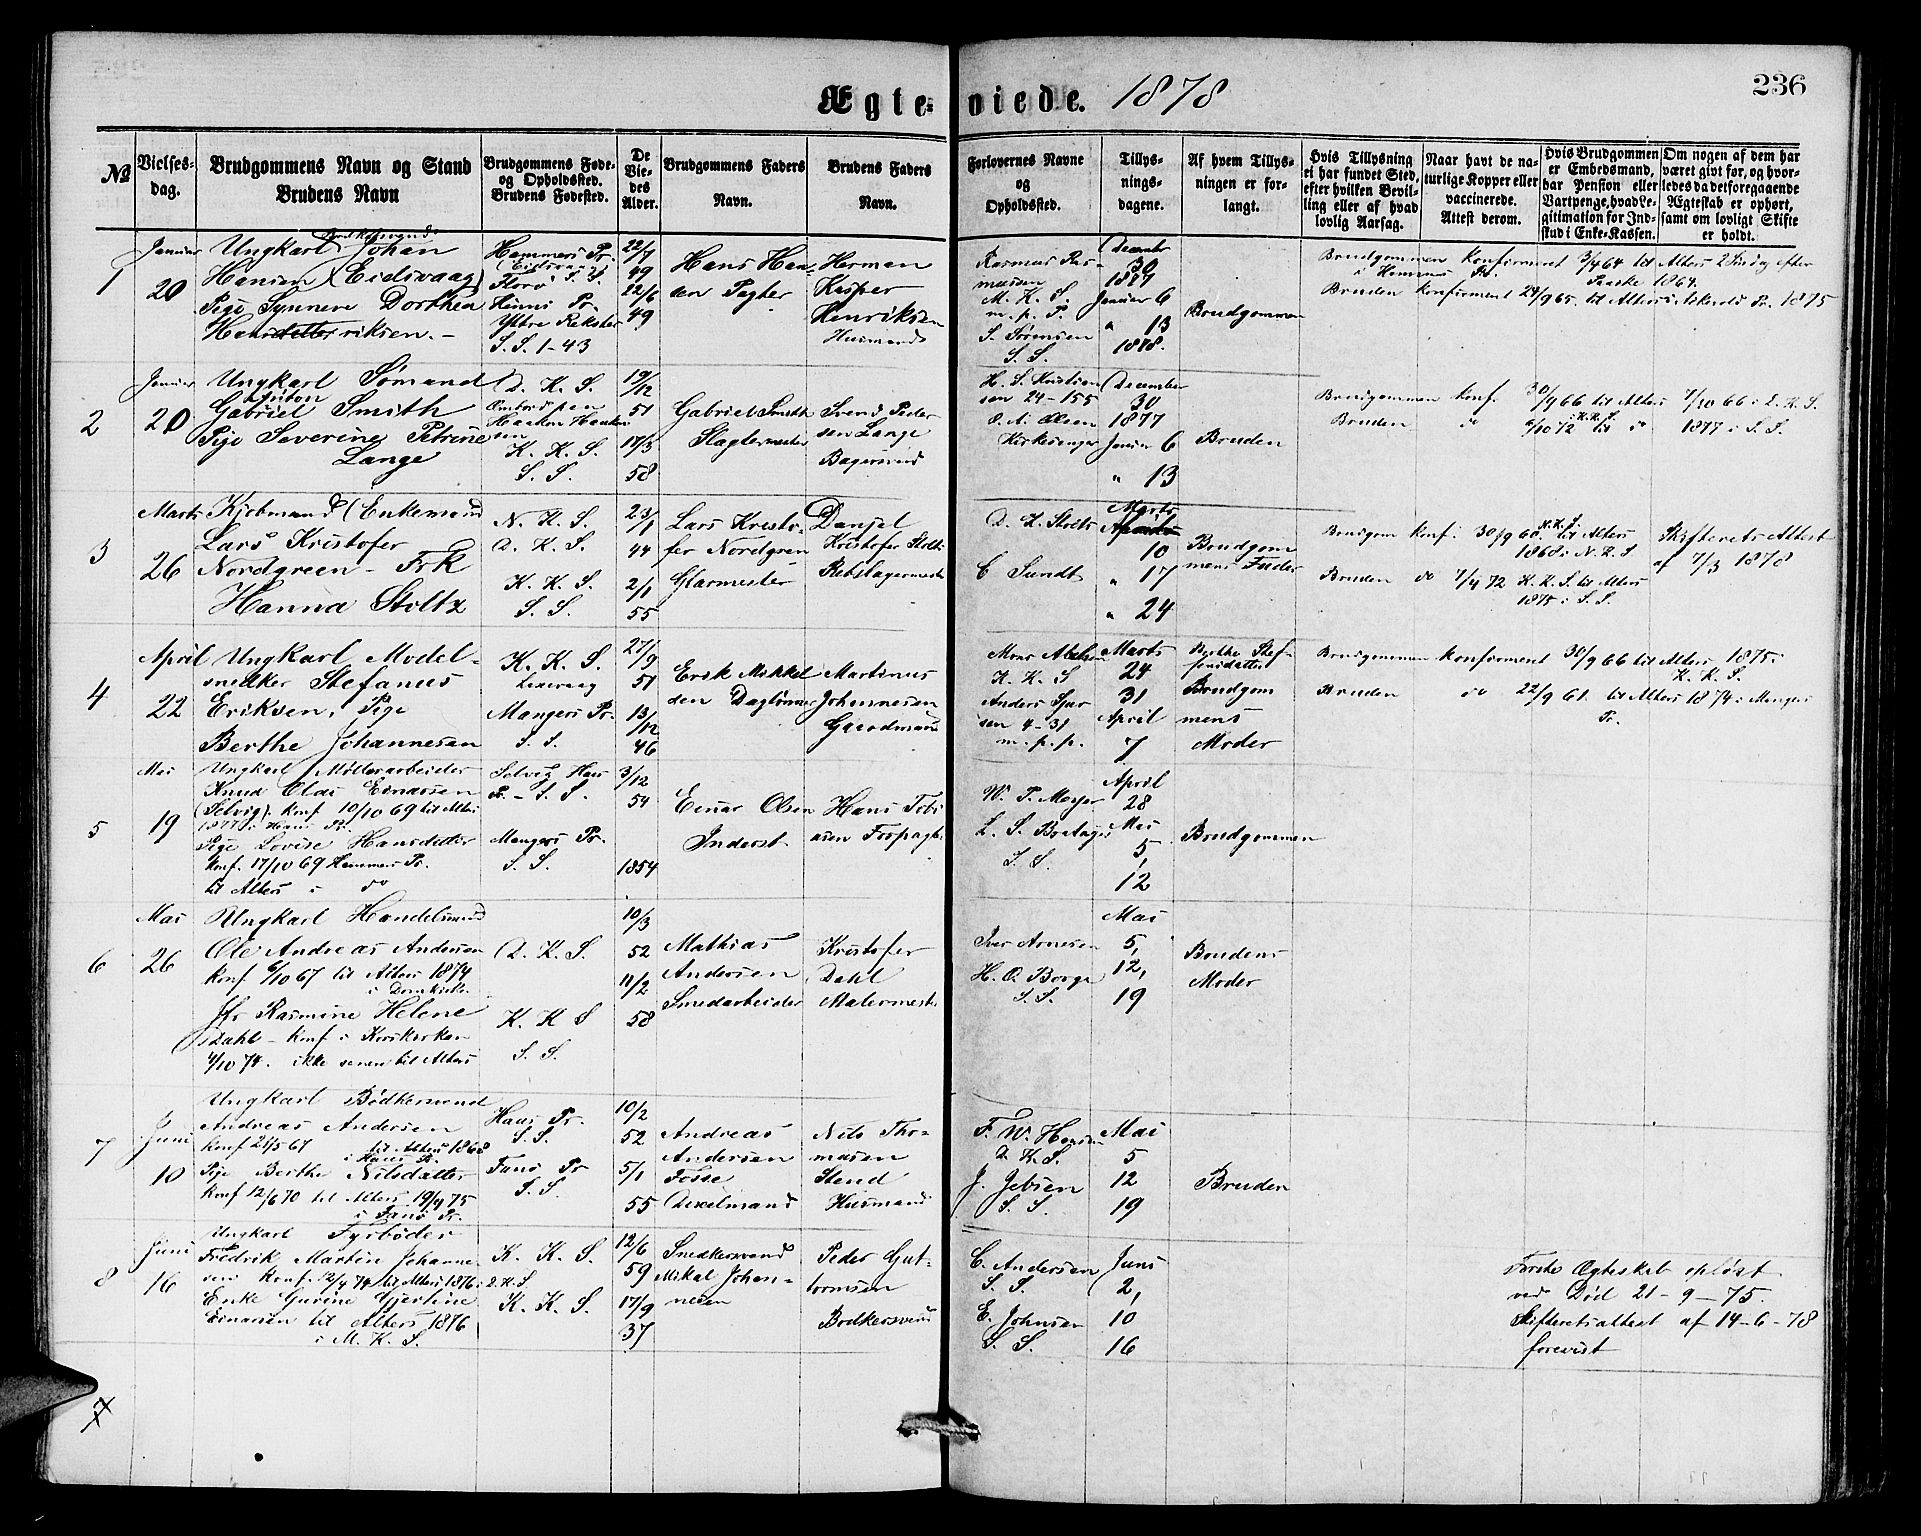 Ægte-viede. 1878
236
№
Vielses-
dag.
Brudgommens Navn og Stand
Brudens Navn
Brudgommens Føde-
og Opholdssted.
Brudens Fødested.
De
Vie-
des
Alder.
Brudgommens Faders
Navn.
Brudens Faders
Navn.
Forlovernes Navne
og
Opholdssted.
Tillys-
nings-
dagene.
Af hvem Tillys-
ningen er for-
langt.
Hvis Tillysning
ei har fundet Sted,
efter hvilken Bevil-
ling eller af hvad
lovlig Aarsag.
Naar havt de na-
turlige Kopper eller
vaccinerede.
Attest derom.
Hvis Brudgommen
er Embedsmand,
har Pension eller
Vartpenge, hvad Le-
gitimation for Ind-
skud i Enke-Kassen.
Om nogen af dem har
været givt før, og hvor-
ledes da det foregaaende
Ægteskab er ophørt,
samt om lovligt Skifte
er holdt.
1
Januar
20
Ungkarl Johan
Hansen (Eidsvaag)
Pige Synneve Dorthea
Henriksen. -
Hammers Pr.
(Eidsvaag)
Florø S. S.
Kinns Pr.
Yttre Rekster
S. S. 1-43
22/7
49
22/6
49
Hans Han-
sen Pagter
Herman
Kasper
Henriksen
Husmand
Rasmus Ras-
musen
M. K. S.
m. p. P.
S. Sørensen
S. S.
December
30
1877
Januar 6
" 13
1878.
Brudgommen
Brudgommen Konfirmeret 3/4 64 til Alters 2 Søndag efter
Paaske 1864.
Bruden Konfirmeret 24/9 65. til Alters i Askevold Pr. 1875
2
Januar
20
Ungkarl Sømand
Anton
Gabriel Smith
Pige Severine Petrine
Lange
D. K. S.
Ombord paa
Haakon Haakon
sen
K. K. S.
S. S.
19/12
51
17/3
58
Gabriel Smith
Slagtermester
Svend Peder
sen Lange
Bagersvend
H. S. Kristian
sen 24-155
O. A. Olsen
Kirkesanger
December
30
1877
Januar 6
" 13
Bruden
Brudgommen Konf. 30/9 66 til Alters 7/10 66 i D. K. S.
Bruden do 6/10 72 i K. K. S. til do 1877 i S. S.
3
Marts
26
Kjøbmand (Enkemand
Lars Kristofer
Nordgreen - Frk
Hanna Stoltz
N. K. S.
D. K. S.
K. K. S.
S. S.
23/1
44
2/1
55
Lars Kristo-
fer Nordgreen
Glarmester
Danjel
Kristofer Stoltz
Rebslagermester
D. K. Stoltz
C Sundt
Marts
10
" 17
" 24
Brudgom
mens Fader
Brudgom Konf. 30/9 60. N. K. S. til Alters
1860 i N. K. S
Skifterets Attest
af 7/3 1878
Bruden do 7/4 72 K. K. S. til Alters
1875 i S. S.
4
April
22
Ungkarl Model-
snedker Stefanus
Eriksen, Pige
Berthe Johannesen
K. K. S.
Laxevaag
Mangers Pr.
S. S.
27/9
51
13/12
46
Erik Mikkel
sen Daglønner
Martinus
Johannesen
Gaardmand
K. K. S
Anders Sjur
sen 4-31
m. p. p.
Marts
24
31
April
7
Berthe Stef-
fensdatter
Brudgom
mens
Moder
Brudgommen Konfirmeret 30/9 66 til Alters 1875.
K. K. S.
Bruden do 22/9 61. til Alters 1874 i Mangers
Pr.
5
Mai
19
Ungkarl Møllerarbeider
Knud Olai Einarsen
(Selvig). Konf 10/10 69 til Alters
1877 i Haus Pr.
Pige Lovise Hansdatter
Konf. 17/10 69 Hammers Pr.
til Alters i do
Selvig Haus
Pr. - S. S.
Mangers Pr.
S. S.
3/12
54
1854
Einar Olsen
Inderst
Hans Tobi
asen
W. P. Meyer
S. S.
April
28
Mai
5,
12
Brudgommen
6
Mai
26
Ungkarl Handelsmand
Ole Andreas Andersen
Konf 6/10 67 til Alters 1874
i Domkirken
Jfr Rasmine Helene
Dahl - Konf i Korskirken
4/10 74. ikke senere til Alters
D. K. S.
K. K S
S. S.
10/3
52
11/2
58
Mathias
Andersen
Smedarbeider
Kristofer
Dahl
Malermest.
Iver Arnesen
H. O. Borge
S. S.
Mai
5,
12,
19
Brudens
Moder
7
Juni
10
Ungkarl Bødkersvend
Andreas Andersen
Konf 21/5 67 til Alters 1868
i Haus Pr.
Pige Berthe Nilsdatter
Konf 12/6 70 til Alters 19/4 75
i Fanø Pr.
Haus Pr.
S. S.
Fanø Pr
S. S.
10/2
52
5/1
55
Andreas
Andersen
Fosse
Nils Tho-
masen
Stend
Husmand
F. W. Hansen
D. K. S.
J. Jebsen
S. S.
Mai
5
12
19
Bruden
8
Juni
16
Ungkarl Fyrbøder
Fredrik Martin Johanne
sen Konf. 12/4 74 til Alters 1876 i
D. K. S
Enke Gurine Gjertine
Einarsen til Alters 1876
i M. K. S.
K. K. S.
K. K. S.
12/6
59
17/9
37
Snedkersvend
Mikal Johan-
nesen
Peder Gut-
tormsen
Bødkersvend
C. Andersen
S. S.
E. Johnsen
S. S.
Juni
2,
10
16
Første Ægteskab opløst
ved Død 21-9-75.
Skifteretsattest af 14-6-78
forevist
7